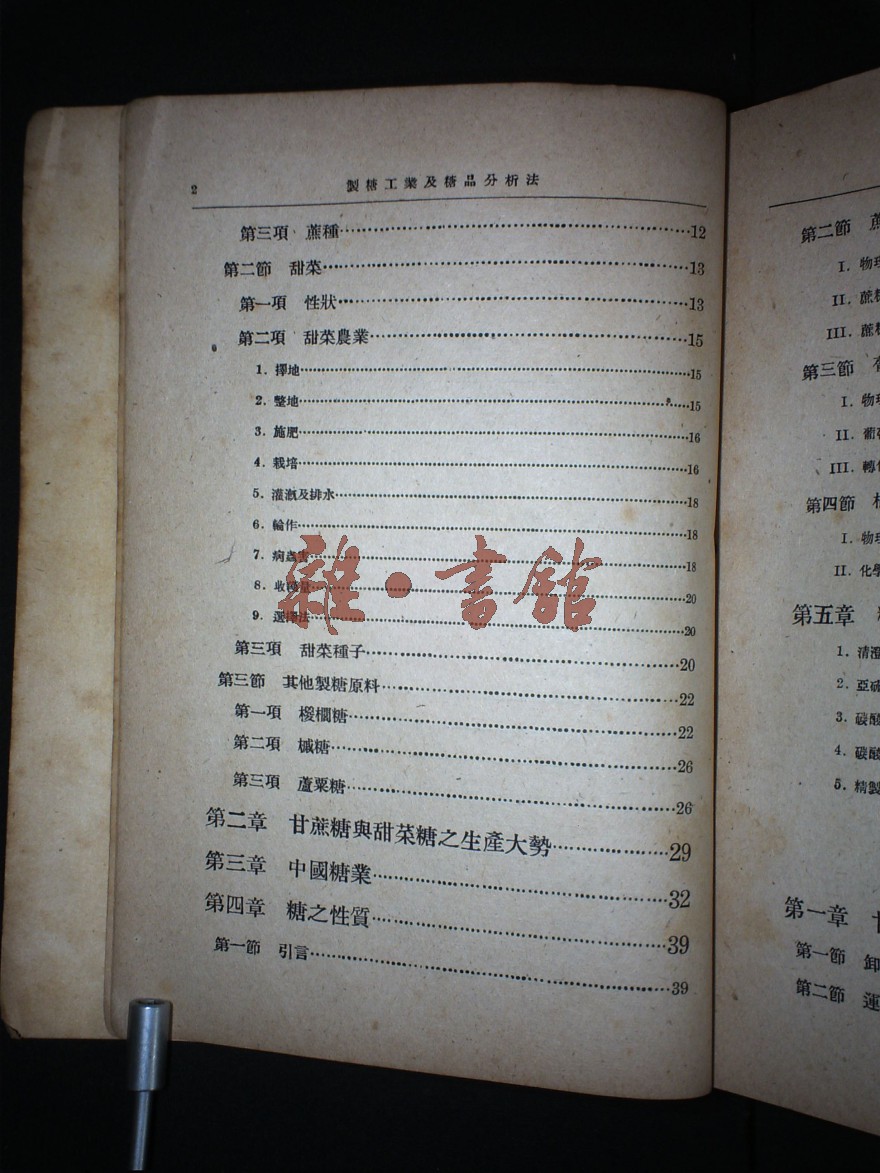 2
製糖工業及糖品分析法
第三項 蔗種 12
第二節 甜菜 13
第一項 性狀 13
第二項 甜菜農業 15
1. 擇地 15
2. 整地 15
3. 施肥 16
4. 栽培 16
5. 灌漑及排水 18
6. 輪作 18
7. 病蟲害 18
8. 收穫量 20
9. 選擇法 20
第三項 甜菜種子 20
第三節 其他製糖原料 22
第一項 椶櫚糖 22
第二項 槭糖 26
第三項 蘆粟糖 26
第二章 甘蔗糖與甜菜糖之生產大勢 29
第三章 中國糖業 32
第四章 糖之性質 39
第一節 引言 39
雜·書館
第二節
I. 物理
II. 蔗糖
III. 蔗糖
第三節
I. 物理
II. 葡萄
III. 轉化
第四節
I. 物理
II. 化學
第五章
1. 清澄
2. 亞硫
3. 碳酸
4. 碳酸
5. 精製
第一章
第一節 卸
第二節 運